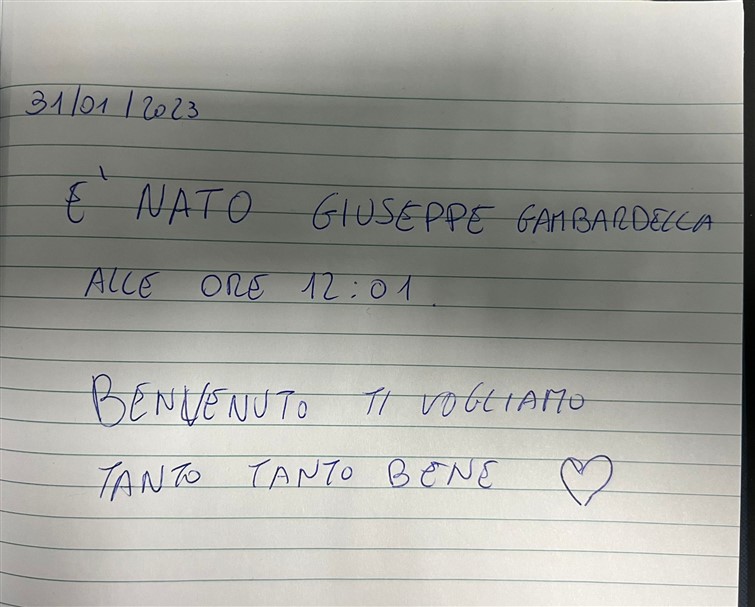 31/01/2023
È NATO GIUSEPPE GAMBARDELLA
ALLE ORE 12:01.
BENVENUTO TI VOGLIAMO
TANTO TANTO BENE ♡